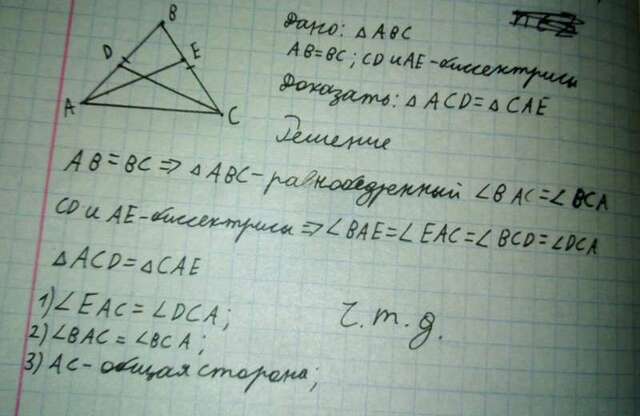 B
D
E
A
C
Дано: △ABC
AB=BC; CD и AE-биссектрисы
Доказать: △ACD=△CAE
Решение
AB=BC=>△ABC-равнобедренный ∠BAC=∠BCA
CD и AE-биссектрисы=>∠BAE=∠EAC=∠BCD=∠DCA
△ACD=△CAE
1)∠EAC=∠DCA;
2)∠BAC=∠BCA;
3)AC-общая сторона;
ч.т.д.